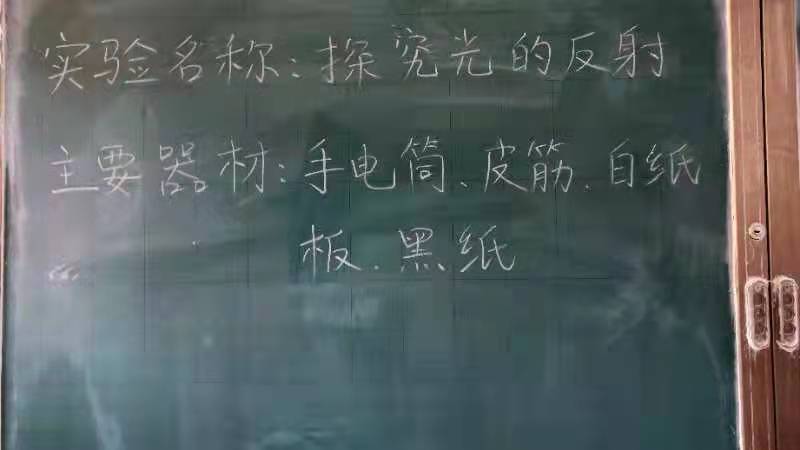 实验名称:探究光的反射
主要器材:手电筒、皮筋、白纸
板、黑纸